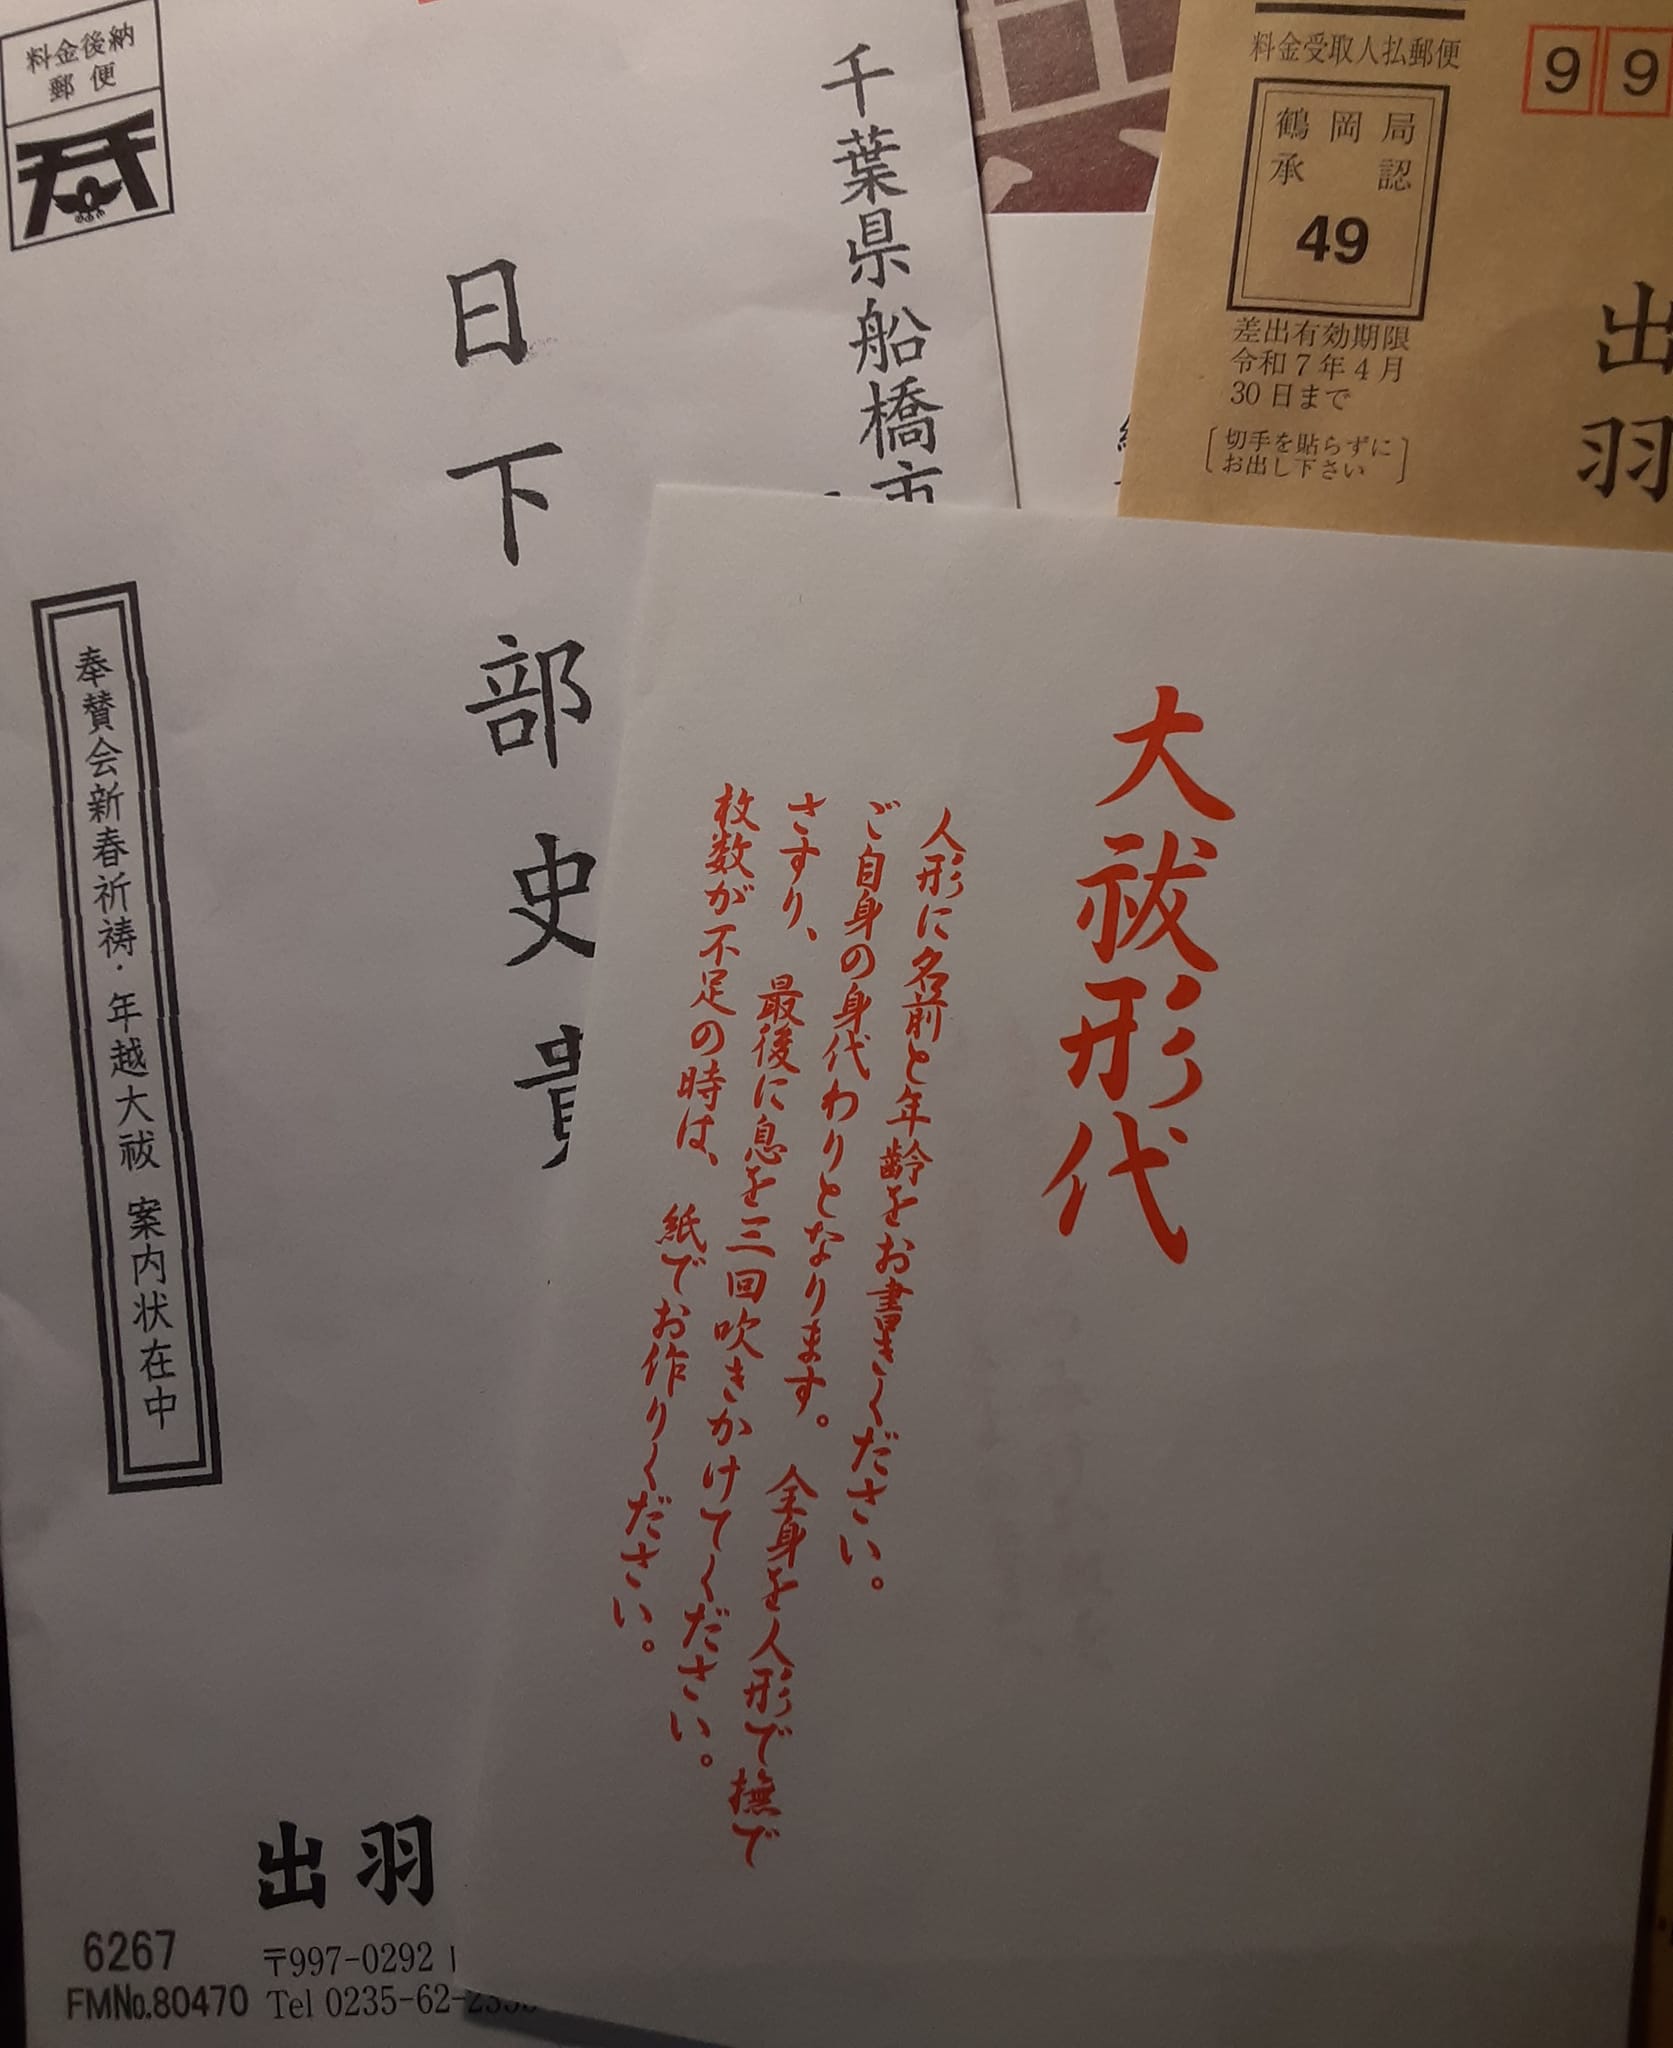 料金後納
郵便
千葉県船橋市
日下部史貴
奉賛会新春祈祷・年越大祓 案内状在中
出羽
6267
FM№.80470
〒997-0292
Tel 0235-62-
料金受取人払郵便
鶴岡局
承認
49
差出有効期限
令和7年4月
30日まで
切手を貼らずに
お出し下さい
99
出羽
大祓形代
人形に名前と年齢をお書きください。
ご自身の身代わりとなります。 全身を人形で撫で
さすり、 最後に息を三回吹きかけてください。
枚数が不足の時は、 紙でお作りください。